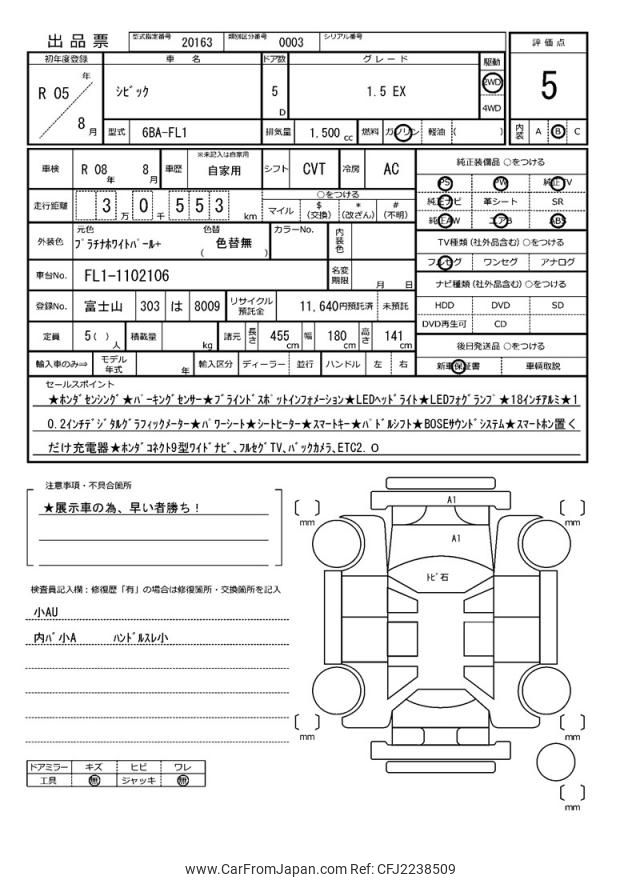 出品票 型式指定番号 20163 類別区分番号 0003 シリアル番号
評価点
5
内装 A B C
初年度登録 車名 ドア数 グレード 駆動
R 05 年 8 月 シビック 5 D 1.5 EX 2WD 4WD
型式 6BA-FL1 排気量 1,500 cc 燃料 ガソリン 軽油 ( )
車検 R 08 年 8 月 車歴 ※未記入は自家用 自家用 シフト CVT 冷房 AC
走行距離 3 万 0 千 5 5 3 km ○をつける マイル $ (交換) * (改ざん) # (不明)
外装色 元色 プラチナホワイトパール+ 色替 ( 色替無 ) カラーNo. 内装色
車台No. FL1-1102106 名変期限 月 日
登録No. 富士山 303 は 8009 リサイクル預託金 11,640円預託済 未預託
定員 5 ( ) 人 積載量 kg 諸元 長さ 455 cm 幅 180 cm 高さ 141 cm
輸入車のみ⇒ モデル年式 年 輸入区分 ディーラー 並行 ハンドル 左 右
純正装備品 ○をつける
PS PW 純正TV
純正ナビ 革シート SR
純正AW エアB ABS
TV種類 (社外品含む) ○をつける
フルセグ ワンセグ アナログ
ナビ種類 (社外品含む) ○をつける
HDD DVD SD
DVD再生可 CD
後日発送品 ○をつける
新車保証書 車輌取説
セールスポイント
★ホンダセンシング★パーキングセンサー★ブラインドスポットインフォメーション★LEDヘッドライト★LEDフォグランプ★18インチアルミ★1
0.2インチデジタルグラフィックメーター★パワーシート★シートヒーター★スマートキー★パドルシフト★BOSEサウンドシステム★スマートホン置く
だけ充電器★ホンダコネクト9型ワイドナビ、フルセグTV、バックカメラ、ETC2.O
注意事項・不具合箇所
★展示車の為、早い者勝ち!
検査員記入欄:修復歴「有」の場合は修復箇所・交換箇所を記入
小AU
内バ小A ハンドルスレ小
ドアミラー キズ ヒビ ワレ
工具 無 ジャッキ 無
A1
A1
トビ石
mm
mm
mm
mm
mm
www.CarFromJapan.com Ref: CFJ2238509